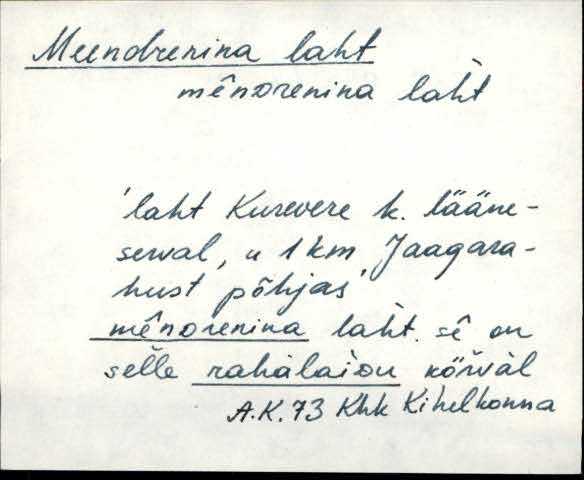 Meendrenina laht
mênᴅrenina laht
'laht Kurevere k. lääne-
serval, u 1 km Jaagara-
hust põhjas'
mênᴅrenina laht. sê on
selle rahalaiᴅu kõrval
A.K. 73 Khk Kihelkonna